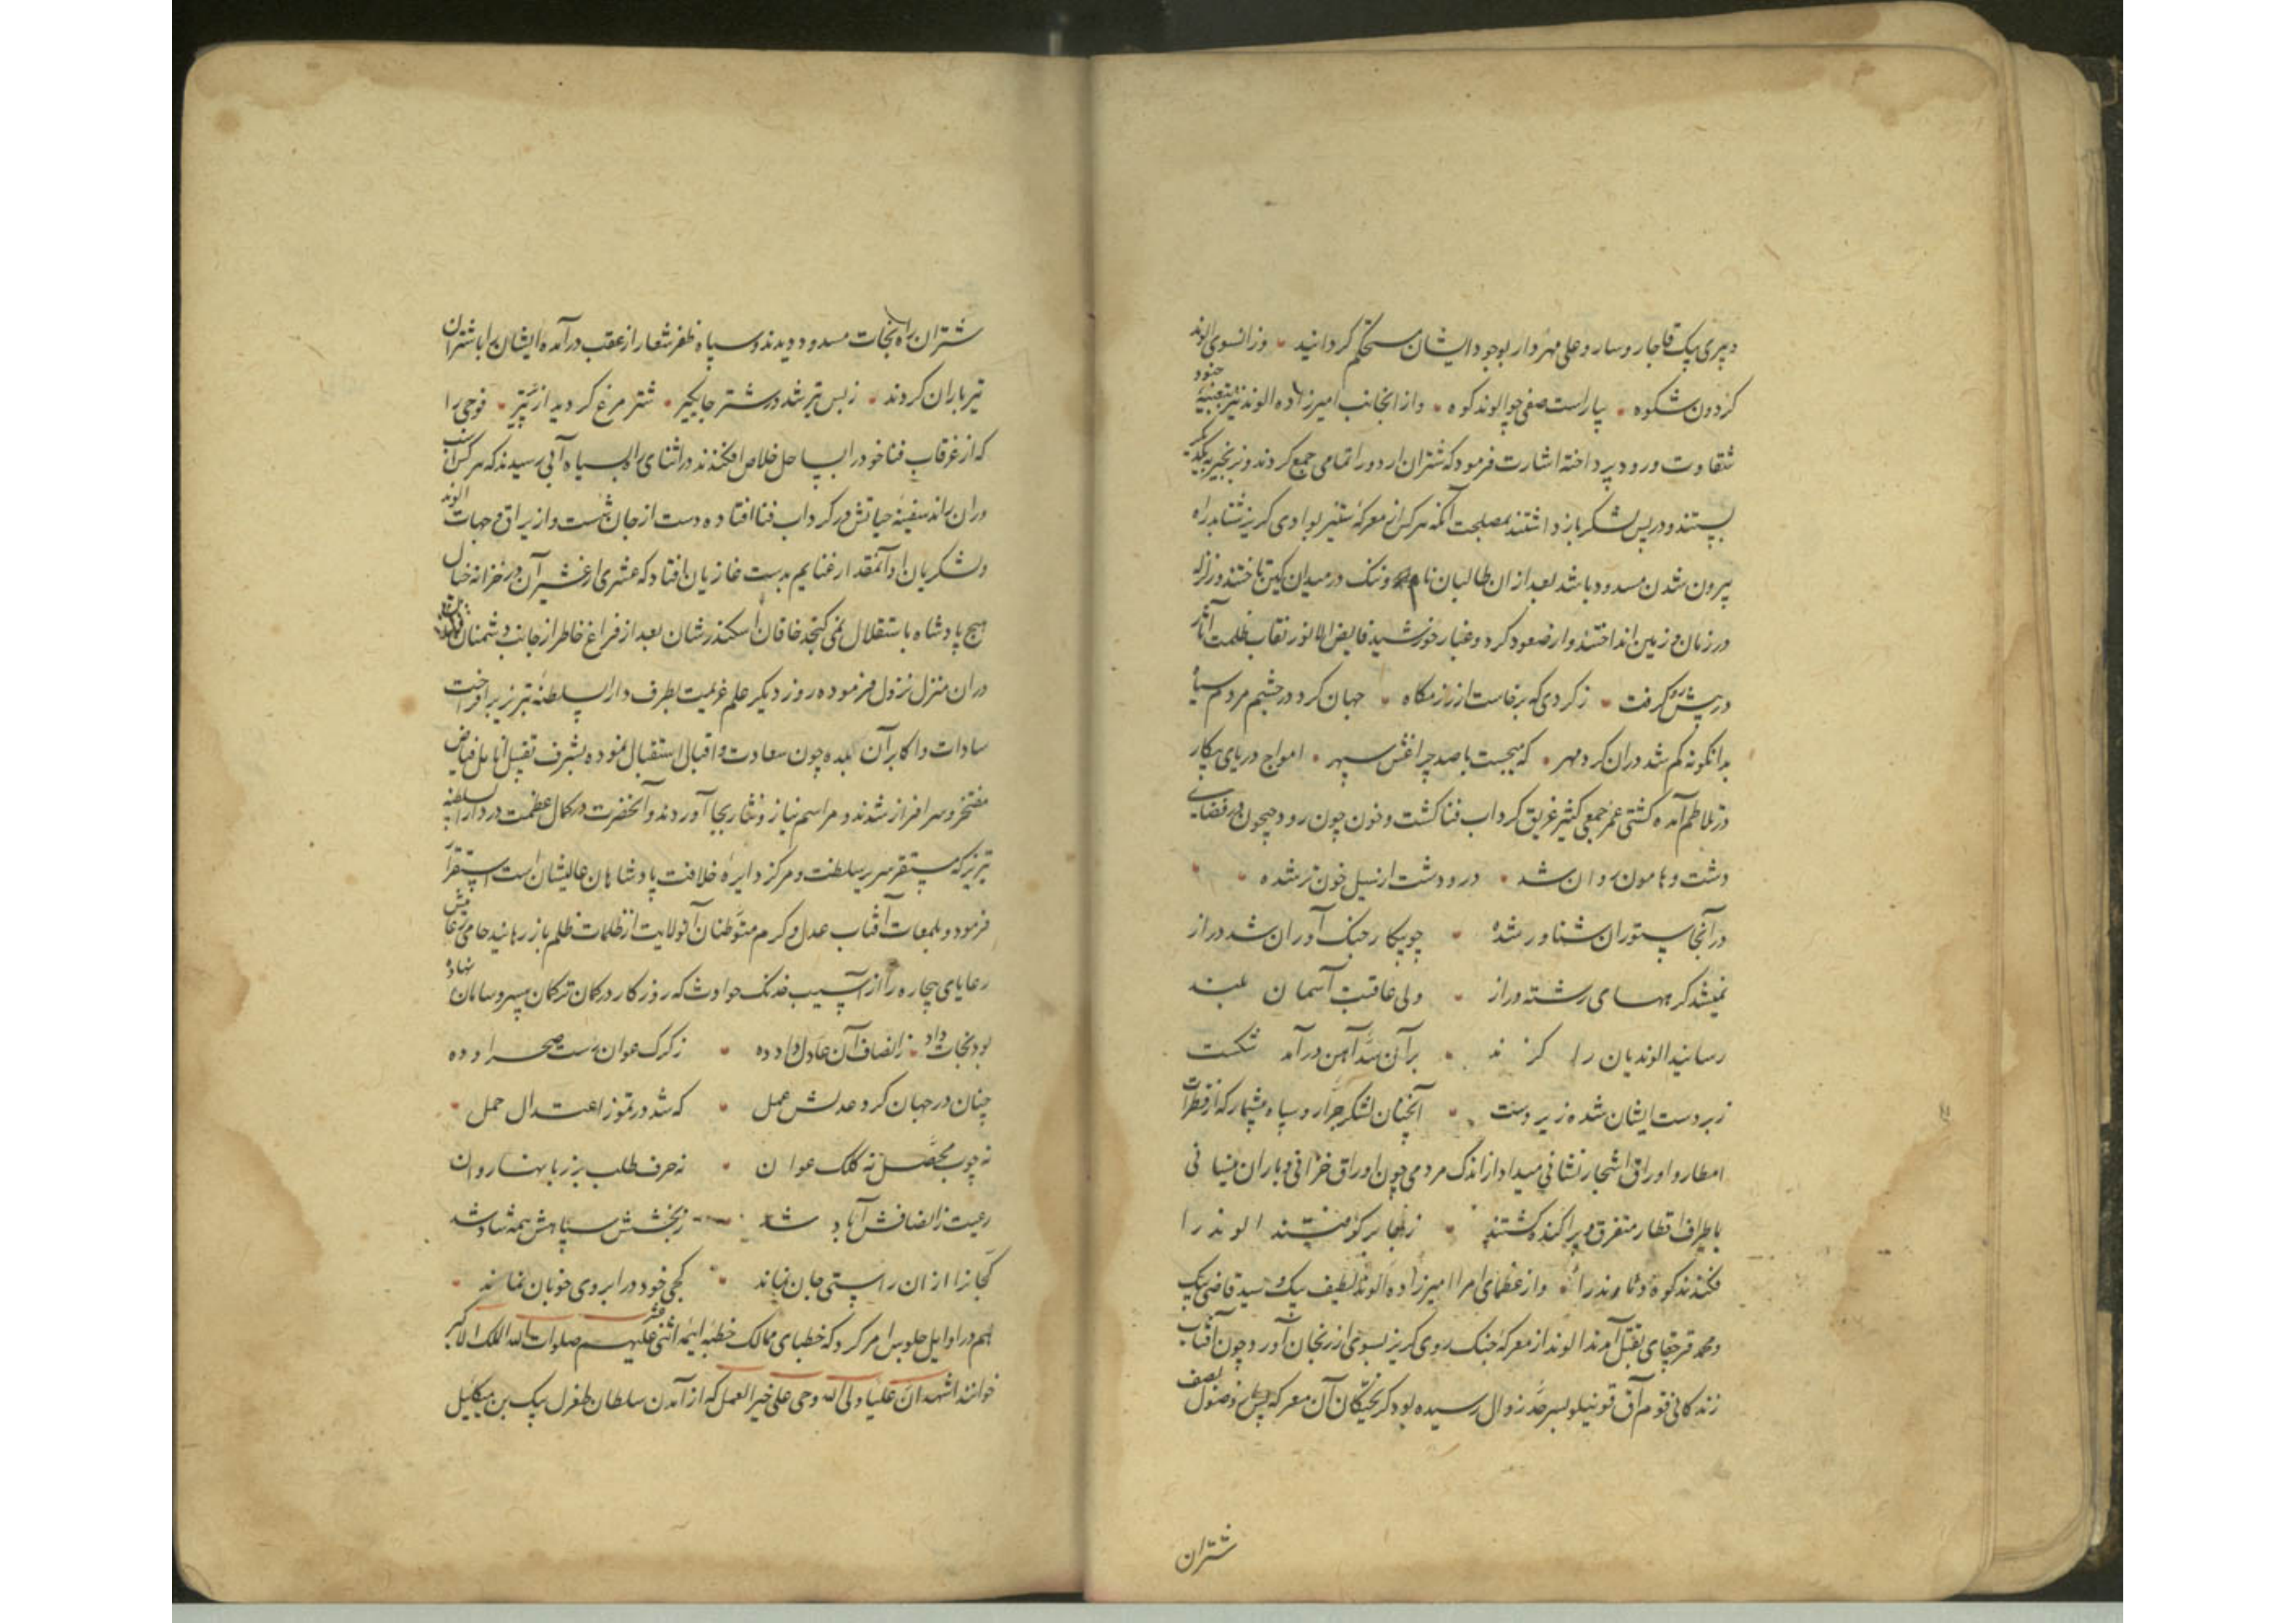 و پیری بیک قاجار و ساروعلی مهردار بوجود ایشان مستحکم گردانید و زانسوی الوند
گردون شکوه بیاراست صفی چو الوند کوه و از انجانب امیرزاده الوند نیز بتعبیه جنود
شقاوت ورود پرداخته اشارت فرمود که شتران اردو را تمامی جمع کردند و زنجیر بیکدیگر
بستند و در پس لشکر بازداشتند بمصلحت آنکه هر کس از معرکه ستیز بوادی گریز شتابد راه
بیرون شدن مسدود باشد بعد از ان طالبان نام و ننک در میدان کین تاختند و زلزله
در زمان و زمین انداختند و از صعود گرد و غبار خورشید فایض الانور نقاب ظلمت آثار
در پیش رو گرفت ز گردی که برخاست از رزمگاه جهان گرد در چشم مردم سیاه
بدانگونه گم شد در ان گرد مهر که میجست با صد چراغش سپهر امواج دریای پیکار
در تلاطم آمده کشتی عمر جمعی کثیر غریق گرداب فنا گشت و خون چون رود جیحون در فضای
دشت و هامون روان شد در و دشت از سیل خون تر شده
در آنجا ستوران شناور شده چو پیکار جنک آوران شد دراز
نمیشد گرههای رشته دراز ولی عاقبت آسمان بلند
رسانید الوندیان را گزند بر آن سد آهن درآمد شکست
زبردست ایشان شده زیردست آنچنان لشکر جرار و سپاه بیشمار که از قطرات
امطار و اوراق اشجار نشانی میداد از اندک مردمی چون اوراق خزانی و باران نیسانی
باطراف اقطار متفرق و پراکنده گشتند ز جا برگرفتند الوند را
فکندند کوه دماوند را و از عظمای امرا امیرزاده الوند لطیف بیک و سید قاضی بیک
و محمد قرچقای بقتل آمدند الوند از معرکه جنک روی گریز بسوی ارزنجان آورد چون آفتاب
زندگانی قوم آق قوینیلو بسرحد زوال رسیده بود گریختگان آن معرکه پس از وصول بصف
شتران
شتران راه نجات مسدود دیدند و سپاه ظفر شعار از عقب درآمده ایشان را با شتران
تیرباران کردند ز بس تیر شد در شتر جایگیر شترمرغ گردید از پر تیر فوجی را
که از غرقاب فنا خود را بساحل خلاص افکندند در اثنای راه بسیاه آبی رسیدند که هر کس اسب
در ان راند سفینه حیاتش در گرداب فنا افتاده دست از جان شست و از یراق و جهات الوند
و لشکریان او آنمقدار غنایم بدست غازیان افتاد که عشری از عشیر آن در خزانه خیال
هیچ پادشاه باستقلال نمی گنجد خاقان اسکندر شان بعد از فراغ خاطر از جانب دشمنان
در ان منزل نزول فرموده روز دیگر علم عزیمت بطرف دارالسلطنه تبریز برافراخت
سادات و اکابر آن بلده چون سعادت و اقبال استقبال نموده بشرف تقبیل انامل فیاض
مفتخر و سرافراز شدند و مراسم نیاز و نثار بجا آوردند و آنحضرت در کمال عظمت در دارالسلطنه
تبریز که مستقر سریر سلطنت و مرکز دایره خلافت پادشاهان عالیشان است استقرار
فرمود و بلمعات آفتاب عدل و کرم متوطنان آنولایت از ظلمات ظلم بازرهانید
رعایای بیچاره را از آسیب خدنک حوادث که روزگار در کمان ترکمان بیسر و سامان نهاده
بود نجات داد ز انصاف آن عادل داد ده ز گرک عوان رست صحرا و ده
چنان در جهان کرد عدلش عمل که شد در تموز اعتدال حمل
نه چوب محصل نه کلک عوان نه حرف طلب بر زبانها روان
رعیت ز انصافش آباد شد ز بخشش سپاهش همه شاد شد
کجانرا از ان راستی جان نماند کجی خود در ابروی خوبان نماند
هم در اوایل جلوس امر کرد که خطبای ممالک خطبه ائمه اثنی عشر علیهم صلوات الله الملک الاکبر
خوانند اشهد ان علیا ولی الله و حی علی خیر العمل که از آمدن سلطان طغرل بیک بن میکائیل